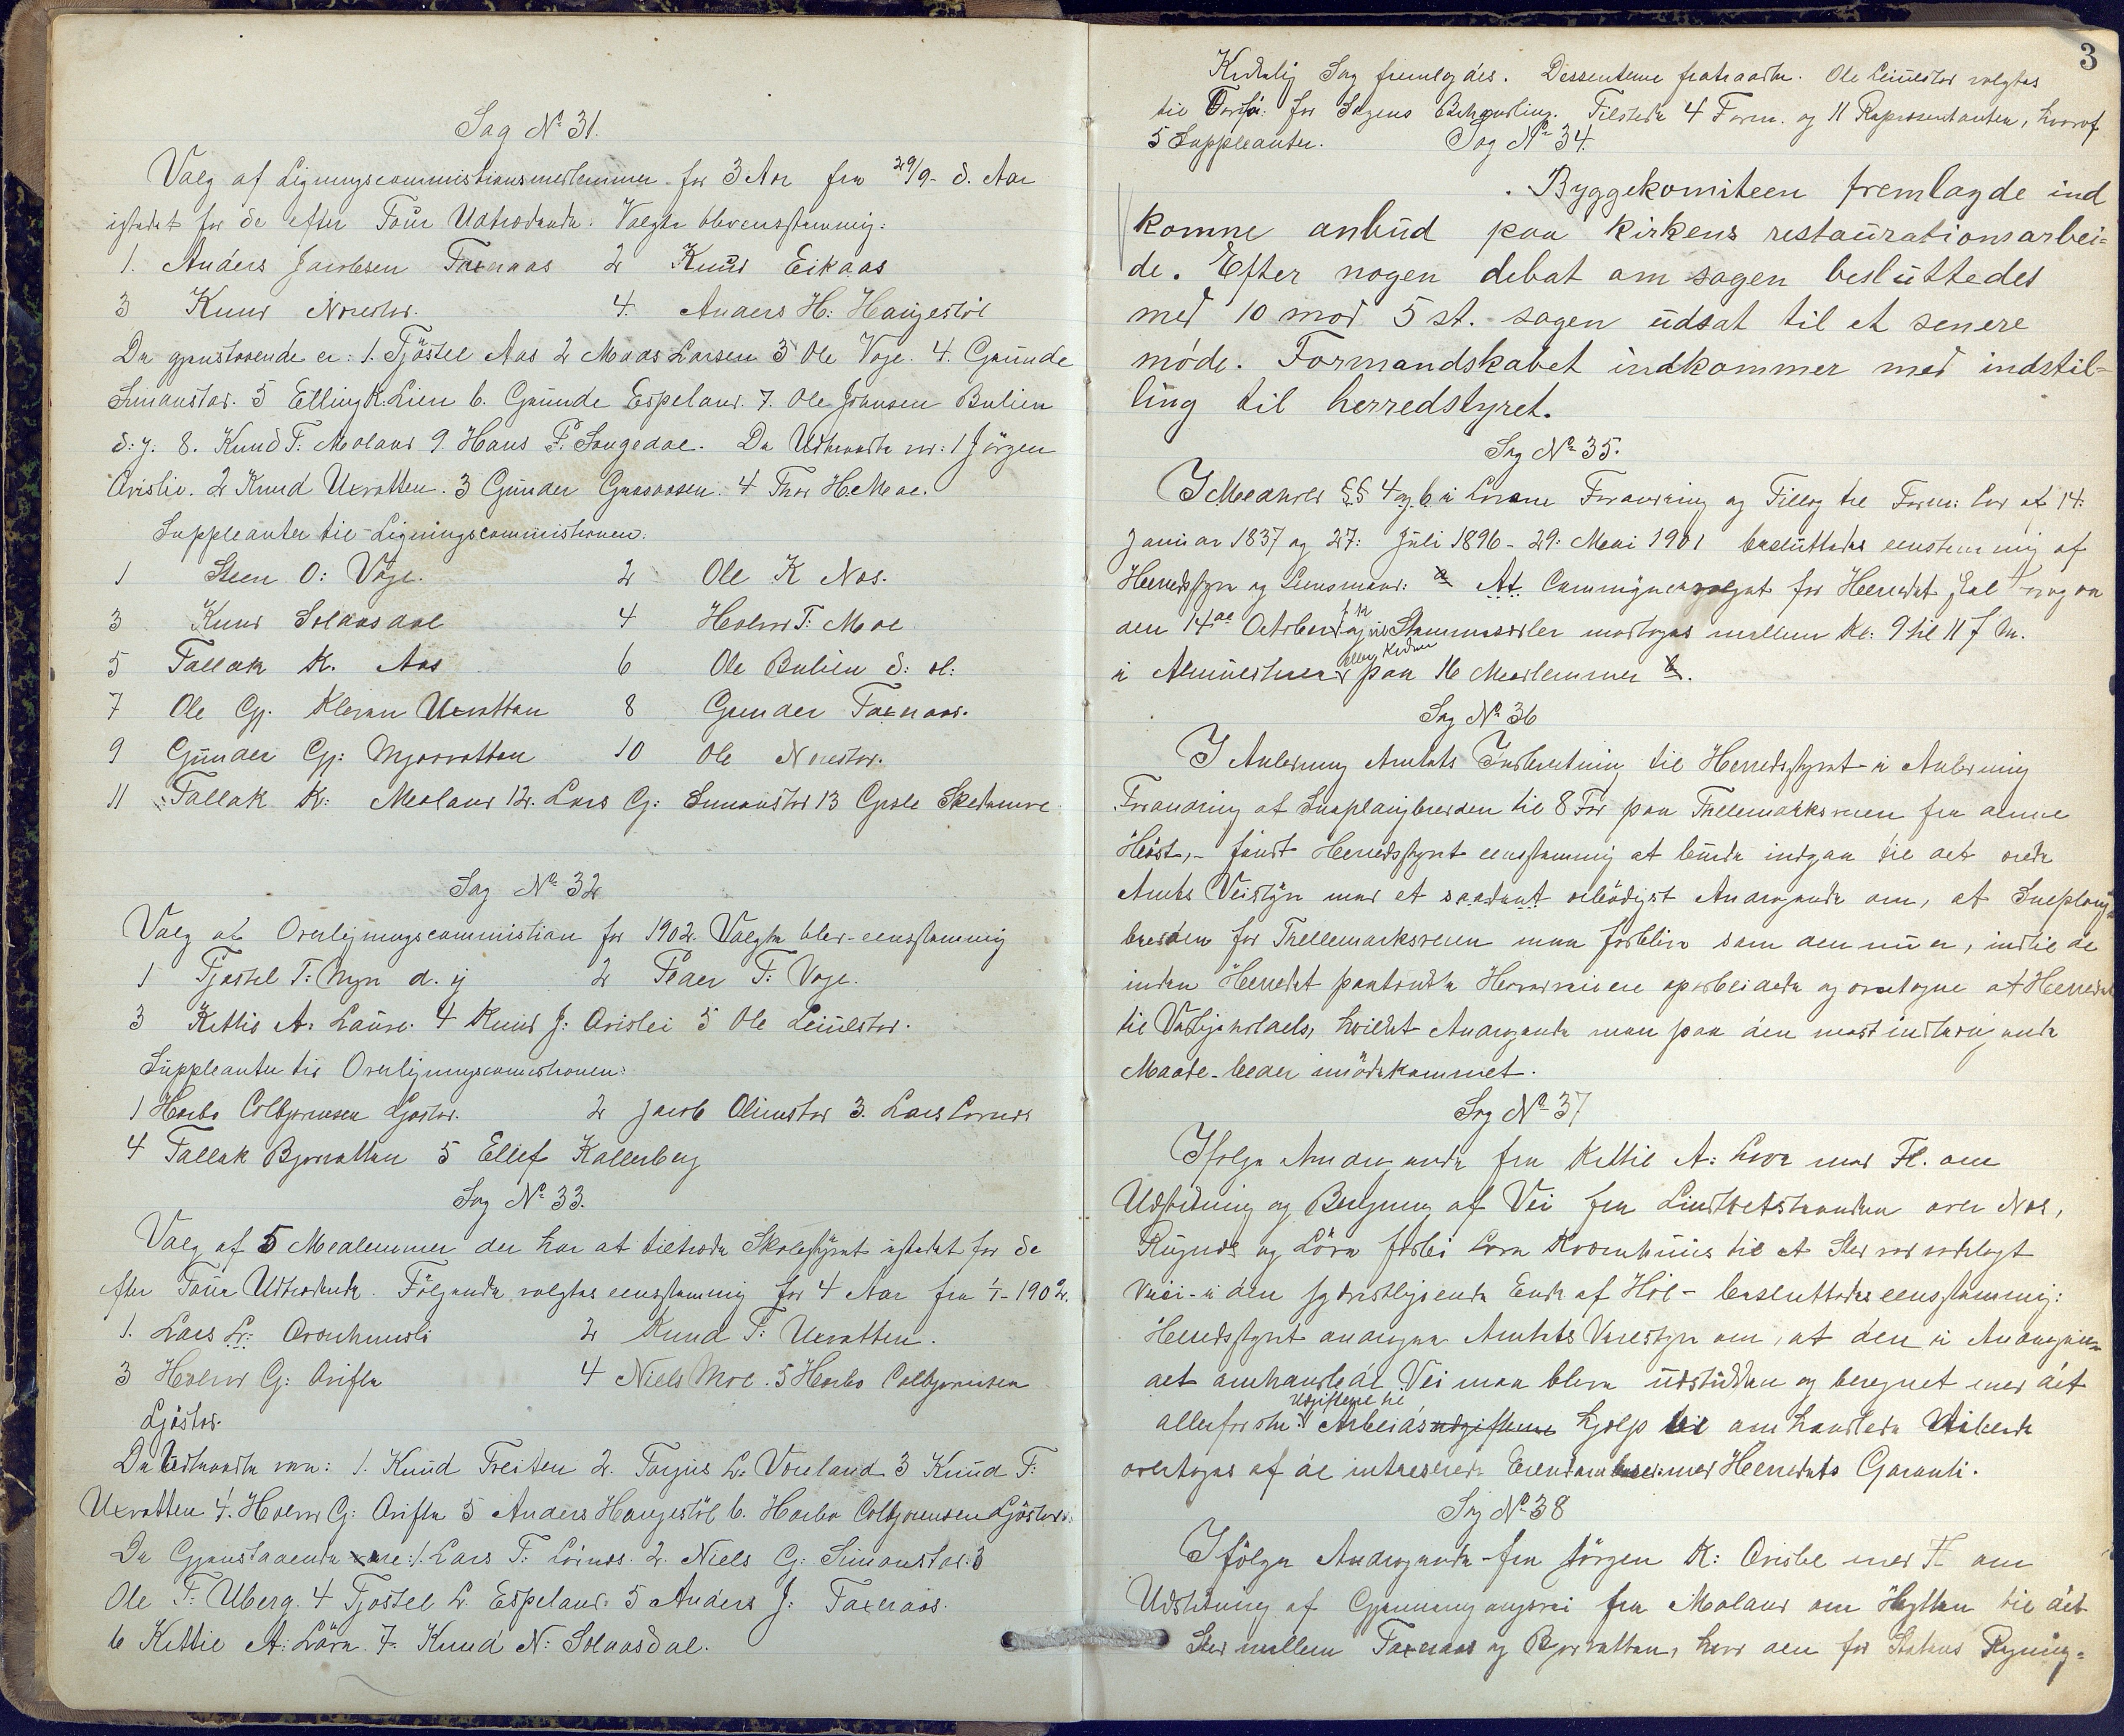 Sag No 31.
Valg af Ligningscommissionsmedlemmer for 3 Aar fra 29/9 d. Aar
istedet for de efter Tour Udtrædende. Valgte blev eensstemmig:
1. Anders Jacobsen Taxeraas 2 Knud Eikaas
3 Knud Nordstø. 4. Anders H: Haugestøl
De gjenstaaende er: 1. Tjöstel Aas 2 Mads Larsen 3 Ole Vage. 4. Gunde
Simonstad. 5 Elling K. Lien 6. Gunde Espeland. 7. Ole Johnsen Bulien
d: y. 8. Knud T. Moland 9. Hans P. Songedal. De Udtraadte var: 1 Jörgen
Ovislie. 2 Knud Uxvatten. 3 Gunder Gaasaasen. 4 Thor H. Moe.
Suppleanter til Ligningscommissionen.
1 Steen O: Vage. 2 Ole K Næs.
3 Knud Solaasdal 4 Halvor T. Moe
5 Tallak K. Aas 6 Ole Bulien d: æl:
7 Ole Gj. Kleven Uxvatten 8 Gunder Taxeraas.
9 Gunder Gj: Mjaavatten 10 Ole
11 Tallak K: Moland 12. Lars G: Simonstad 13 Gisle Skedsmoe
Sag No 32
Valg af Overligningscommission for 1902. Valgte blev eensstemmig
1 Tjostel T: Myre d. y 2 Peder T: Vage.
3 Kittil A. Lauve. 4 Knud J: Ovislei 5 Ole Leiulstad.
Suppleanter til Overligningscommissionen:
1 Harbo Colbjørnsen Ljøstad. 2 Jacob Olimstad 3. Lars
4 Tallak Bjorvatten 5 Ellef Kallerberg
Sag No 33.
Valg af 5 Medlemmer der har at tiltræde Skolestyret istedet for de
efter Tour Udtrædende. Følgende valgtes eensstemmig for 4 Aar fra 1/1-1902.
1. Lars L: Ovrenhuusli 2 Knud T: Uxvatten.
3 Halvor G: Ovifte 4 Niels Moe. 5 Harbo Colbjørnsen
Ljøstad.
De Udtraadte var: 1. Knud Treiten 2. Torjus L. Voreland 3 Knud T:
Uxvatten 4. Halvor G: Ovifte 5 Anders Haugestöl 6. Harbo Colbjørnsen Ljöstad.
De Gjenstaaende ere: 1. Lars T: 2. Niels G: Simonstad. 3
Ole T: Uberg. 4 Tjostel L. Espeland. 5 Anders J: Taxeraas.
6 Kittil A: Löve. 7. Knud N: Solaasdal.
3
Kirkelig Sag fremlagdes. Dessenterne fratraadte. Ole Leiulstad valgtes
til Ordfö: for Sagens Behandling. Tilstede 4 Form. og 11 Repræsentanter, hvoraf
5 Suppleanter. Sag No 34.
Byggekomiteen fremlagde ind
komne anbud paa kirkens restaurationsarbei-
de. Efter nogen debat om sagen besluttedes
med 10 mod 5 st. sagen udsat til et senere
møde. Formandskabet indkommer med indstil-
ling til herredstyret.
Sag No 35.
I Medhold §§ 4 og 6 i Lovene Forandring og Tillæg til Form: Lov af 14:
Januar 1837 og 27: Juli 1896 - 29: Mai 1901 besluttedes eenstemmig af
Herredsstyre og Lensmand: At Communevalget for Herredet skal foregaa
den 14de October Stemmesedler modtages mellem Kl: 9 til 11 f. M.
eller Kvinder
i Almuestuen paa 16 Medlemmer
Sag No 36
I Anledning Amtets Indberetning til Herredsstyret i Anledning
Forandring af Sneplougbredden til 8 Fod paa Thellemarksveien fra denne
Høst, - fandt Herredsstyret eensstemmig at burde indgaa til det ærede
Amts Veistyre med et saadant ærbödigst Andragende om, at Sneploug
bredden for Thellemarksveien maa forblive som den nu er, indtil de
inden Herredet paatænkte Hovedveie ere oparbeidede og overtagne af Herredet
til Vedligeholdels, hvilket Andragende man paa den mest indtrængende
Maade beder imødekommet.
Sag No 37
Ifølge Andragende fra Kittil A: Løve med Fl. om
Udstikning og Beregning af Vei fra Lindtvetstranden over Næs,
Rugnæs og Löve forbi Løve Kværnhuus til et Sted ved
Veiei i den sydvestligende Ende af Höl - besluttedes eensstemmig:
Herredsstyret andrager Amtets Veistyre om, at den i Andragen-
det omhandlede Vei maa blive udstukken og beregnet med det
Udgifterne til
allerførste. Arbeids udgifterne hjælp til omhandlede
overtages af de interesserede Eiendombesid: med Herredets Garanti.
Sag No 38
Ifölge Andragende fra Jörgen K: Ovislie med Fl om
Udstikning af Gjennemgangsvei fra Moland om Hyllen til det
Sted mellem Taxeraas og Bjorvatten, hvor den for Statens Regning-